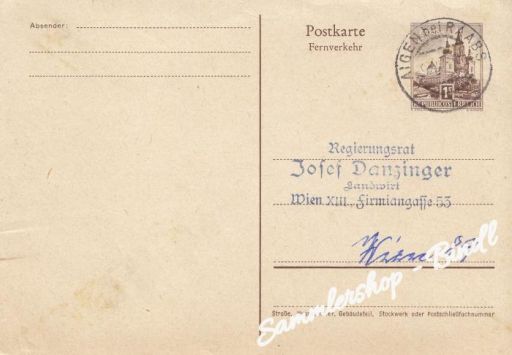 Absender:
Postkarte
Fernverkehr
AIGEN bei RAABS
1S
REPUBLIK ÖSTERREICH
Regierungsrat
Josef Danzinger
Landwirt
Wien XIII., Firmiangasse 53
Wien
Straße, Gebäudeteil, Stockwerk oder Postschließfachnummer
Sammlershop - Bindl